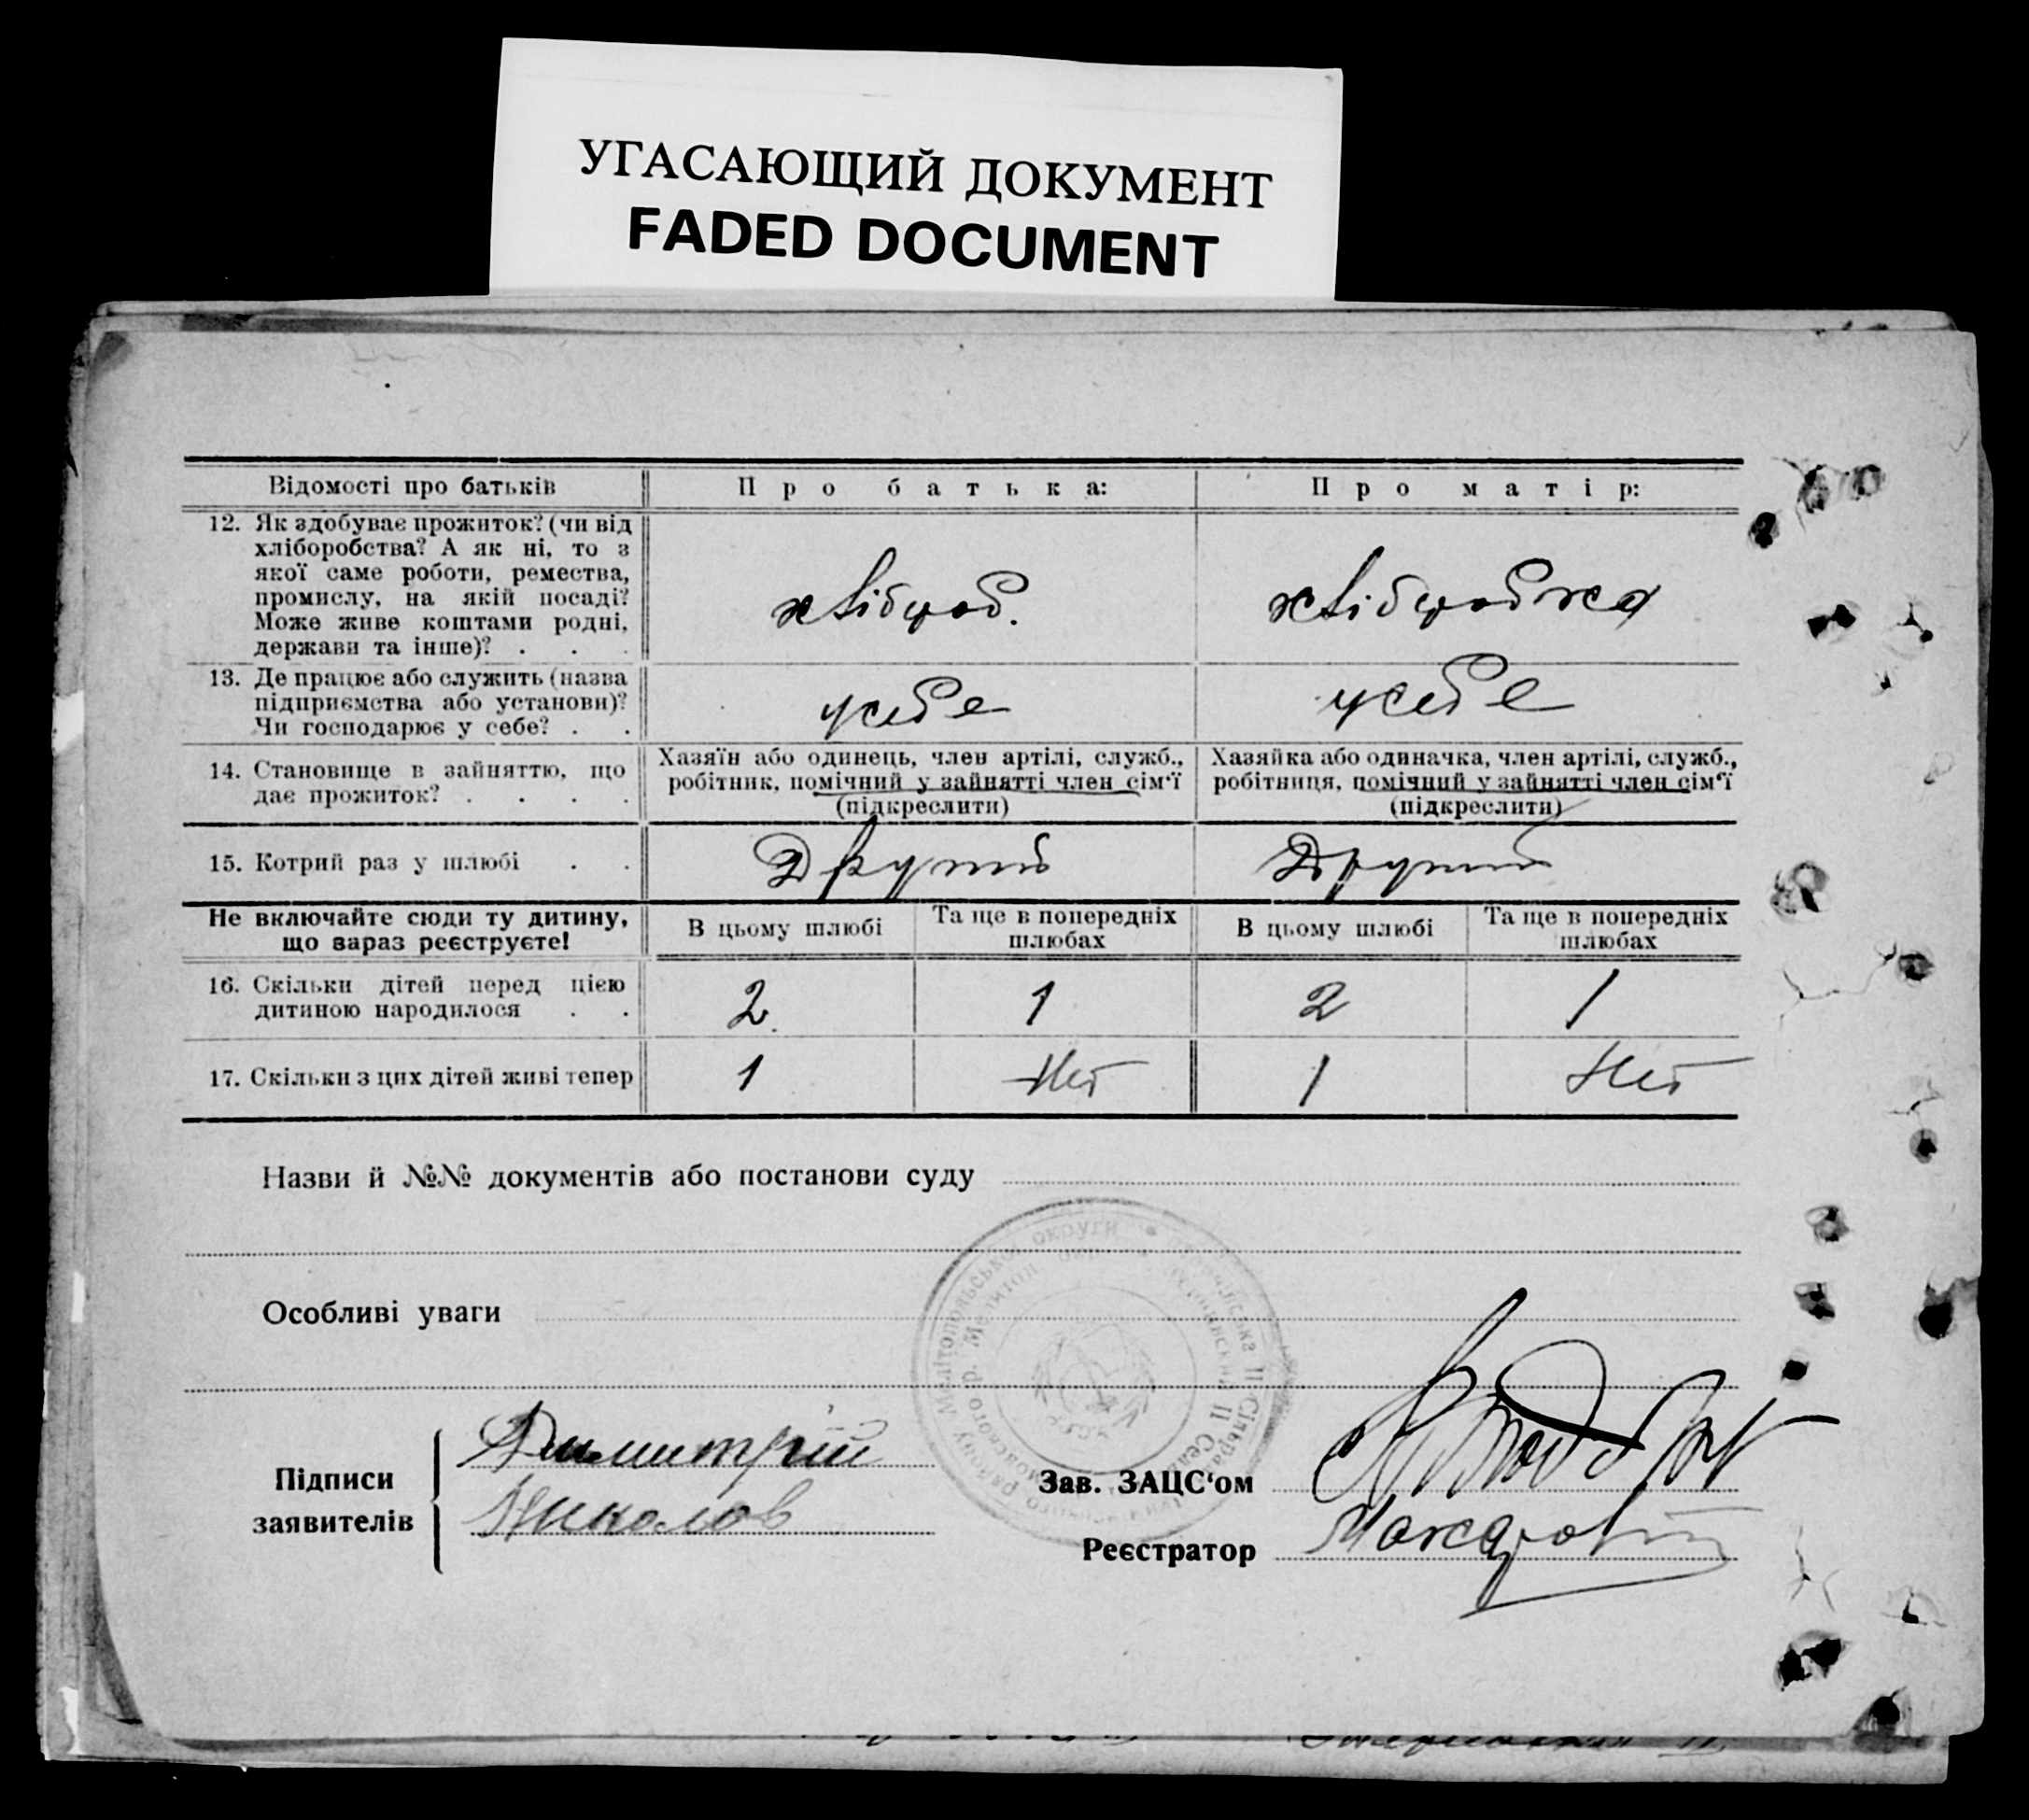 УГАСАЮЩИЙ ДОКУМЕНТ
FADED DOCUMENT
Відомості про батьків
Про батька:
Про матір:
12. Як здобуває прожиток? (чи від
хліборобства? А як ні, то з
якої саме роботи, ремества,
промислу, на якій посаді?
Може живе коштами родні,
держави та інше)? . . .
хлібороб.
хліборобка
13. Де працює або служить (назва
підприємства або установи)?
Чи господарює у себе? . .
у себе
у себе
14. Становище в зайняттю, що
дає прожиток? . . . .
Хазяїн або одинець, член артілі, служб.,
робітник, помічний у зайнятті член сім'ї
(підкреслити)
Хазяйка або одиначка, член артілі, служб.,
робітниця, помічний у зайнятті член сім'ї
(підкреслити)
15. Котрий раз у шлюбі . .
Другий
Другий
Не включайте сюди ту дитину,
що зараз реєструєте!
В цьому шлюбі
Та ще в попередніх
шлюбах
В цьому шлюбі
Та ще в попередніх
шлюбах
16. Скільки дітей перед цією
дитиною народилося . .
2
1
2
1
17. Скільки з цих дітей живі тепер
1
Нет
1
Нет
Назви й №№ документів або постанови суду
Особливі уваги
Мелітопольської округи
II Сільрада
Підписи
заявителів
Димитрій
Николов
Зав. ЗАЦС'ом
Реєстратор